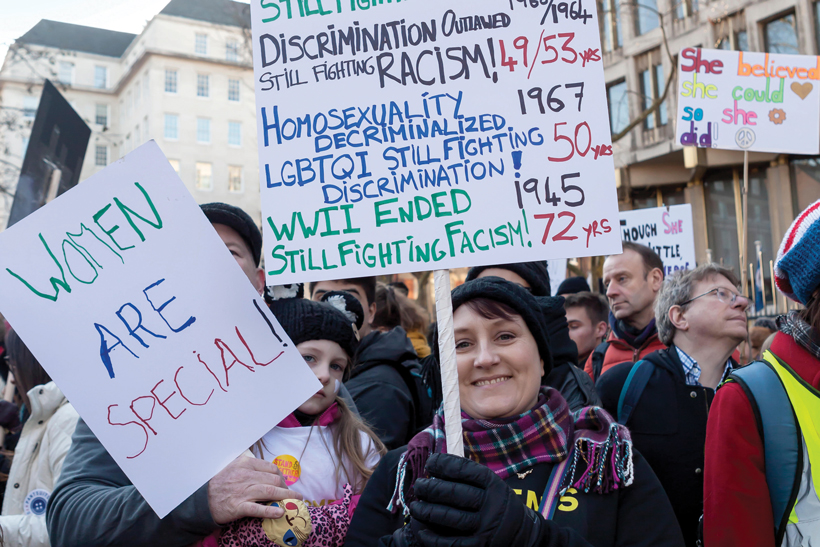 STILL FIGHTIN
/1964
DISCRIMINATION OUTLAWED
STILL FIGHTING RACISM! 49/53 yrs
HOMOSEXUALITY 1967
DECRIMINALIZED
LGBTQI STILL FIGHTING 50 yrs
DISCRIMINATION!
WWII ENDED 1945
STILL FIGHTING FACISM! 72 yrs
She believed
she could
so she
did!
HOUGH SHE
TTLE,
WOMEN
ARE
SPECIAL!!